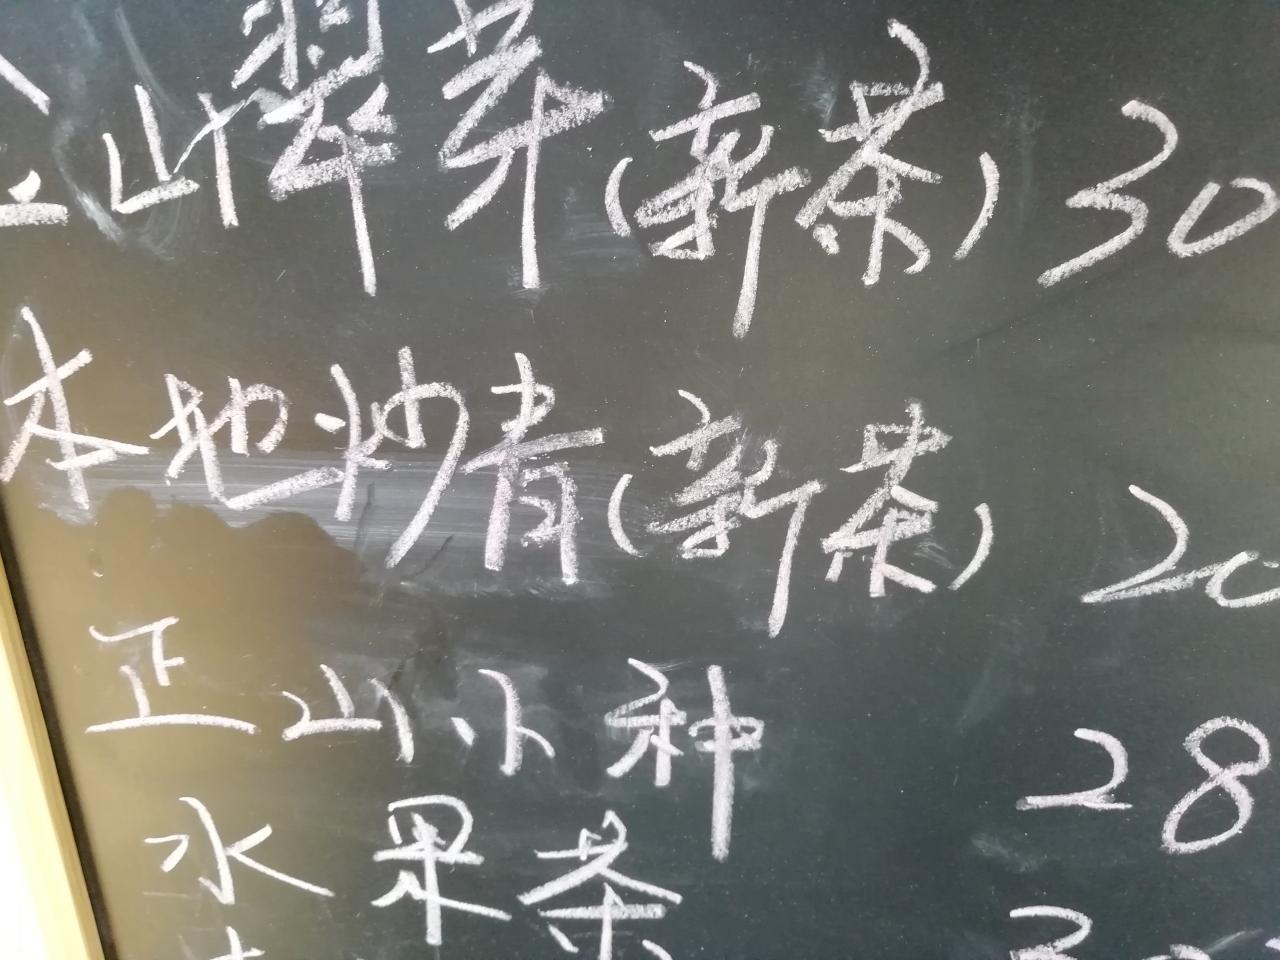 山翠芽(新茶) 30
本地炒青(新茶) 20
正山小种 28
水果茶 30